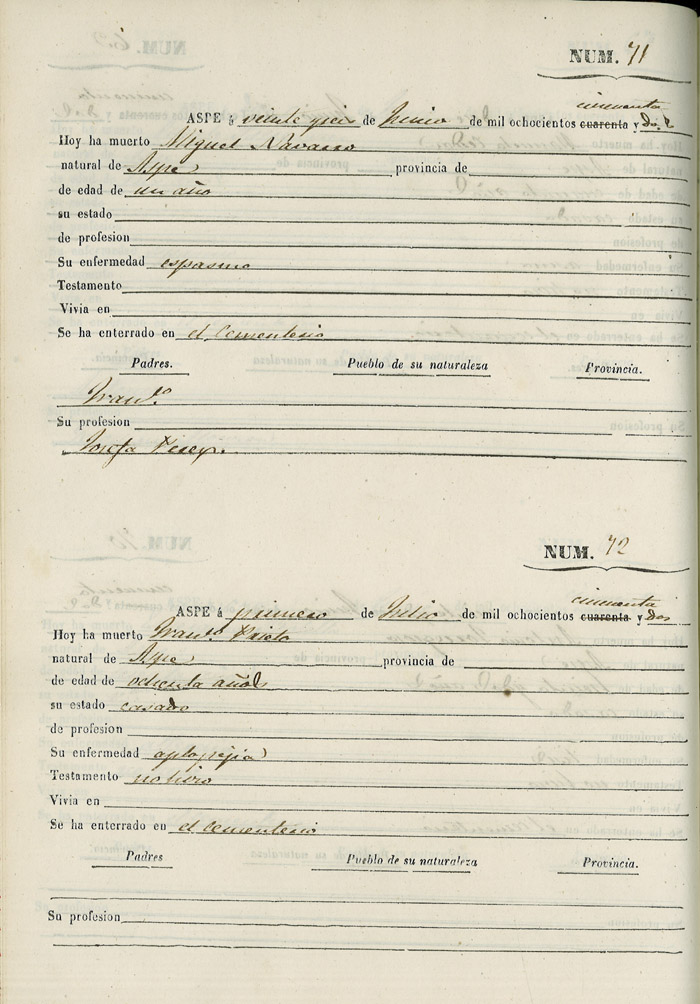 NUM. 71
cincuenta
ASPE á veinte y seis de Junio de mil ochocientos cuarenta y dos
Hoy ha muerto Miguel Navarro
natural de Aspe provincia de
de edad de un año
su estado
de profesion
Su enfermedad espasmo
Testamento
Vivia en
Se ha enterrado en el Cementerio
Padres. Pueblo de su naturaleza Provincia.
Fran.co
Su profesion
Josefa
NUM. 72
cincuenta
ASPE á primero de Julio de mil ochocientos cuarenta y dos
Hoy ha muerto Fran.co Prieto
natural de Aspe provincia de
de edad de ochenta años
su estado casado
de profesion
Su enfermedad aplopejia
Testamento no hizo
Vivia en
Se ha enterrado en el Cementerio
Padres Pueblo de su naturaleza Provincia.
Su profesion